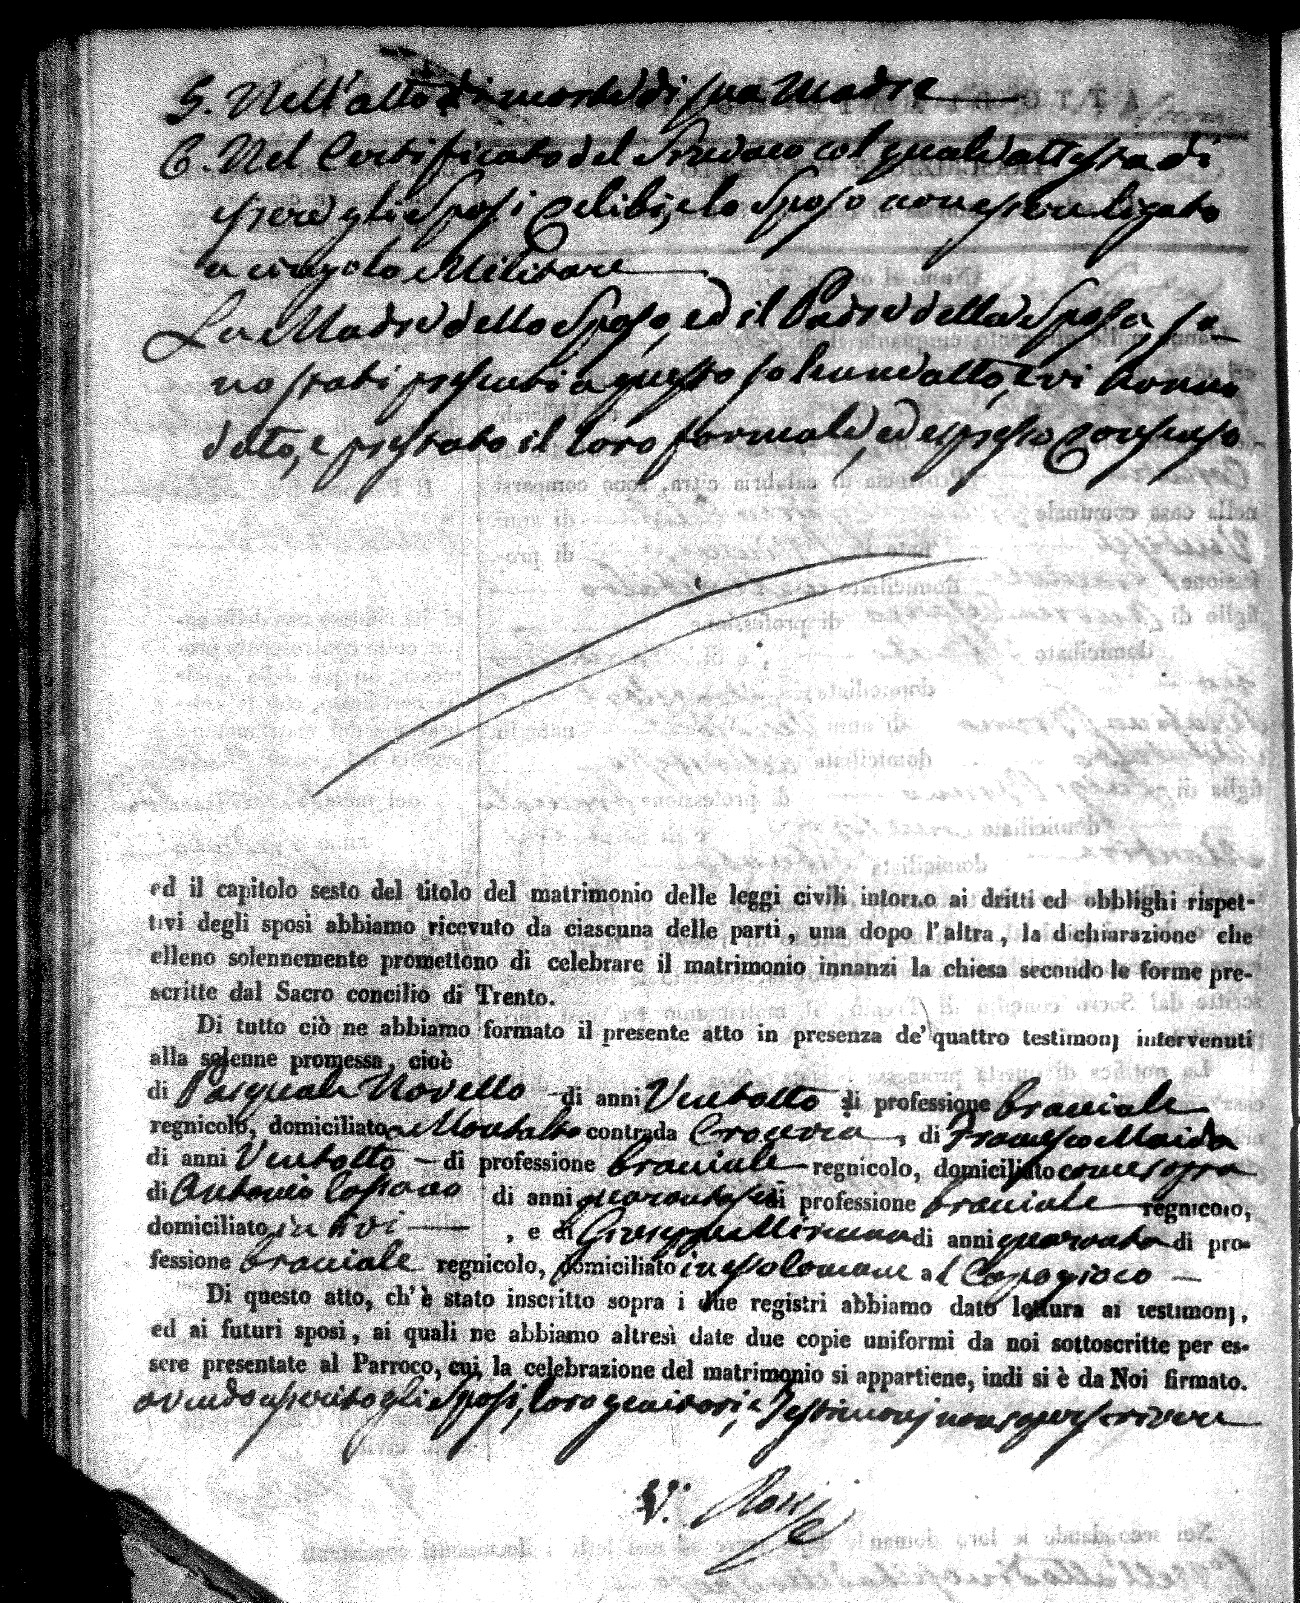 5. Nell'atto di morte di sua Madre
6. Nel Certificato del Sindaco col quale attesta di
essere gli Sposi Celibi, e lo Sposo non essere ligato
a cingolo Militare
La Madre dello Sposo, ed il Padre della Sposa so-
no stati presenti a questo solenne atto, e vi hanno
dato, e prestato il loro formale, ed espresso Consenso
ed il capitolo sesto del titolo del matrimonio delle leggi civili intorno ai dritti ed obblighi rispet-
tivi degli sposi abbiamo ricevuto da ciascuna delle parti, una dopo l'altra, la dichiarazione che
elleno solennemente promettono di celebrare il matrimonio innanzi la chiesa secondo le forme pre-
scritte dal Sacro concilio di Trento.
Di tutto ciò ne abbiamo formato il presente atto in presenza de' quattro testimonj intervenuti
alla solenne promessa, cioè
di Pasquale Novello di anni Ventotto di professione bracciale
regnicolo, domiciliato a Montalto contrada , di Francesco Maida
di anni Ventotto di professione bracciale regnicolo, domiciliato come sopra
di Antonio di anni quarantasei di professione bracciale regnicolo,
domiciliato in ivi , e di Giuseppe di anni quaranta di pro-
fessione bracciale regnicolo, domiciliato in al
Di questo atto, ch'è stato inscritto sopra i due registri abbiamo dato lettura ai testimonj,
ed ai futuri sposi, ai quali ne abbiamo altresì date due copie uniformi da noi sottoscritte per es-
sere presentate al Parroco, cui la celebrazione del matrimonio si appartiene, indi si è da Noi firmato.
avendo asserito gli Sposi, loro genitori, e Testimonj non saper scrivere
V. Rossi